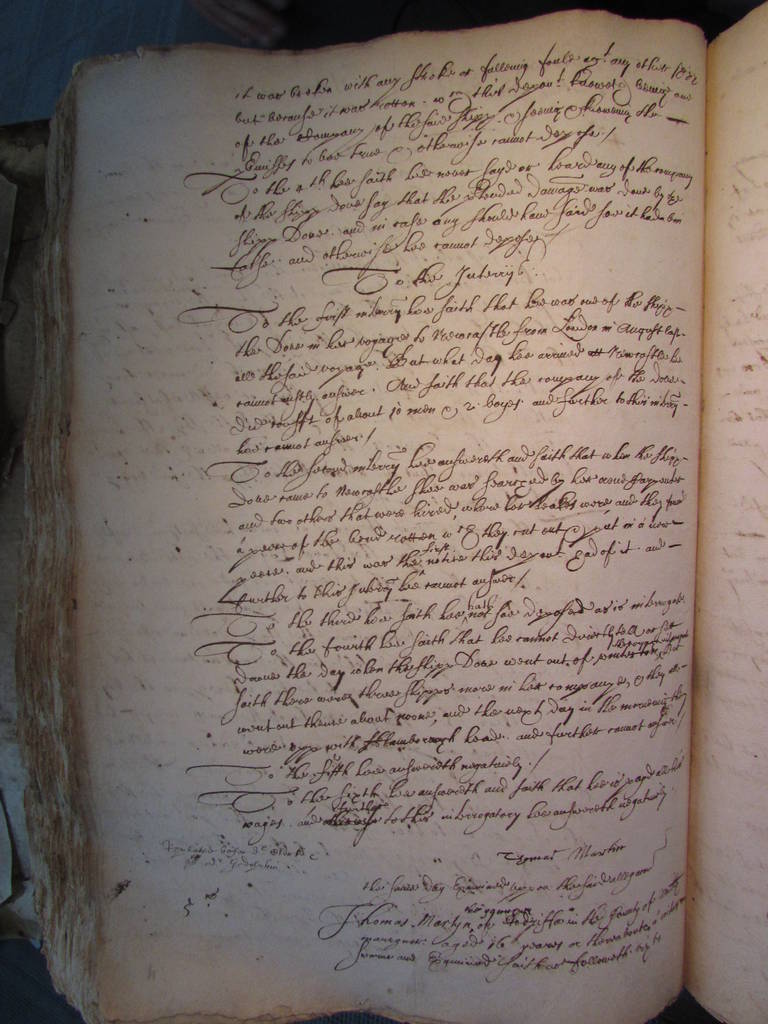 it was broken with any stroke or falling foule of any other
but because it was rotten. this deponent knoweth being one
of the Company of the said shipp & seeing & knowing the
premisses to bee true & otherwise cannot depose./
To the 4th hee saith hee never sayd or heard any of the company
of the shipp Dove say that the pretended damage was done by the
shipp Dove. and in case any should have said soe it had bin
false. and otherwise hee cannot depose/
To the Interrys.
To the first interry hee saith that hee was one of the shipp
the Dove in her voyage to Newcastle from London in August last
the said voyage. But what day hee arrived att Newcastle hee
cannot justly answer. And saith that the company of the Dove
did consist of about 10 men & 2 boyes and further to this interry
hee cannot answer./
To the second interry hee answereth and saith that when the shipp
Dove came to Newcastle shee was searched by her owne Carpenter
and two others that were hired, where her leakes were and they found
a peece of the bend rotten wch they cut out & put in a new
peece. and this was the first notice this deponent had of it. and
further to this Interry hee cannot answer./
To the third hee saith hee hath not soe deposed as is interrogate
To the fourth hee saith that hee cannot directly tell or sett
downe the day when the shipp Dove went out of
saith there were three shipps more in her company, & they all
went out thence about noone, and the next day in the morning they
were upp with fflamborough head. and further cannot answer/
To the fifth hee answereth negatively./
To the sixth hee answereth and saith that hee is payd all his
wages. and further to this interrogatory hee answereth negatively
Thomas Martin
the same day Examined upon the said allegation
Thomas Martyn of in the County of
mariner aged 16 yeares or thereabouts
sworne and Examined saith as followeth vizt